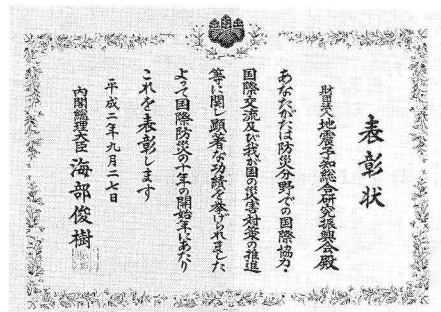 表彰状
財団法人 地震予知総合研究振興会殿
あなたがたは防災分野での国際協力・
国際交流及び我が国の災害対策の推進
等に関し顕著な功績を挙げられました
よって国際防災の十年の開始年にあたり
これを表彰します
平成二年九月二七日
内閣総理大臣 海部俊樹